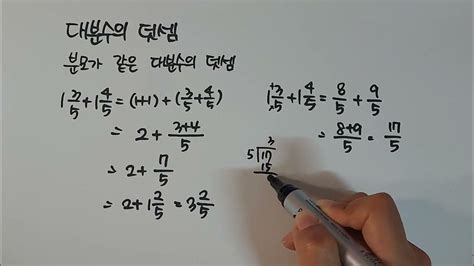 대분수의 덧셈
분모가 같은 대분수의 덧셈
1 3/5 + 1 4/5 = (1+1) + (3/5 + 4/5)
= 2 + 3+4/5
= 2 + 7/5
= 2 + 1 2/5 = 3 2/5
1 +3/×5 + 1 4/5 = 8/5 + 9/5
= 8+9/5 = 17/5
3
5 17
15